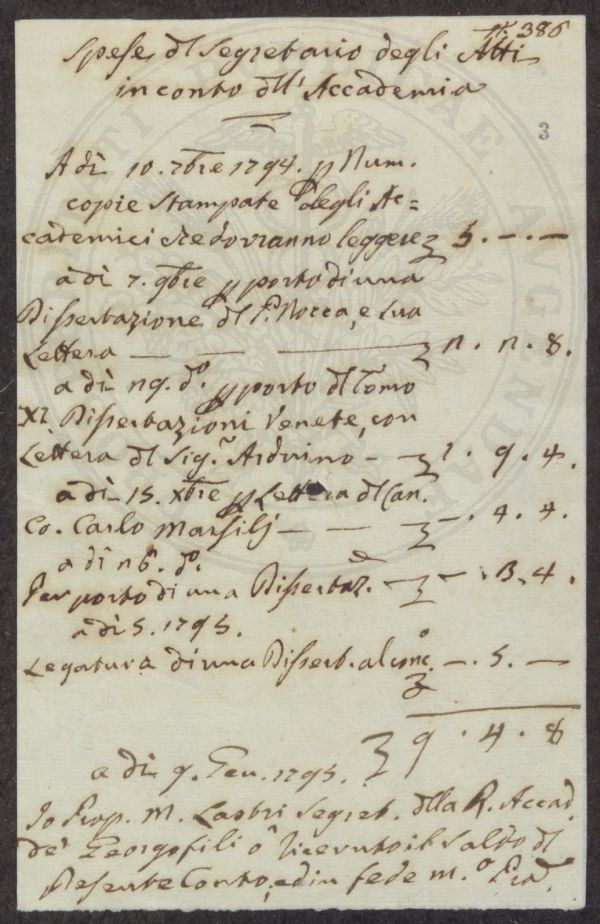 N. 386
Spese dl Segretario degli Atti
in conto dll' Accademia
3
A dì 10. 7bre 1794. p Num.
copie stampate degli Ac=
cademici che dovranno leggere 5. —. —
a dì 7. 9bre p porto di una
Dissertazione dl P. Rocca, e sua
Lettera — — — 8.
a dì 19. do. p porto dl Tomo
XI. Dissertazioni Venete, con
Lettera dl Sig. Arduino — 1. 9. 4.
a dì 15. Xbre p Lettera dl Can.
Co. Carlo Marsilj — — —. 4. 4.
a dì 16. do.
Per porto di una Dissertaz. — —. 13. 4.
a dì 5. 1795.
Legatura di una Dissert. al conc.o —. 5. —
9. 4. 8
a dì 9. Gen. 1795.
Io Prop. M. Lastri Segret. dlla R. Accad.
de' Georgofili ò ricevuto il saldo dl
Presente Conto, ed in fede m.o